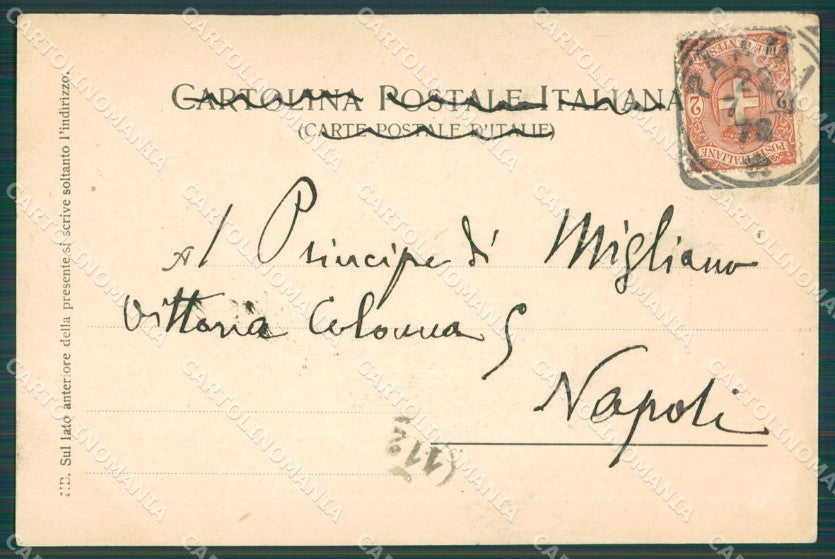 CARTOLINA POSTALE ITALIANA
(CARTE POSTALE D'ITALIE)
Al Principe di Migliano
Vittoria Colonna 5
Napoli
NB. Sul lato anteriore della presente si scrive soltanto l'indirizzo.
POSTE ITALIANE
2
2
CARTOLINOMANIA